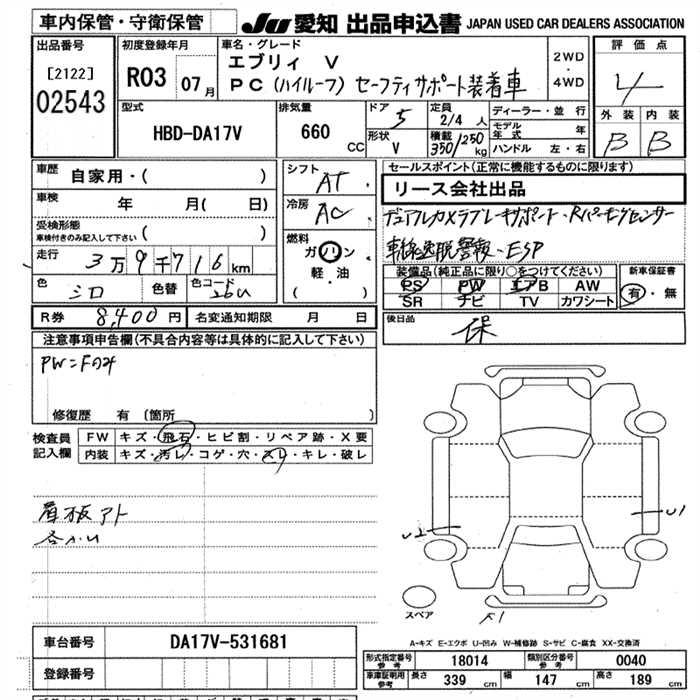 車内保管・守衛保管
JU 愛知 出品申込書 JAPAN USED CAR DEALERS ASSOCIATION
出品番号
[2122]
02543
初度登録年月
R03 07月
車名・グレード
エブリィ V
PC (ハイルーフ) セーフティサポート装着車
2WD
・
4WD
評価点
4
外装 内装
B B
型式
HBD-DA17V
排気量
660 CC
ドア
5
形状
V
定員
2/4人
積載
350/250 kg
ディーラー・並行
モデル年式 年
ハンドル 左・右
車歴
自家用・( )
車検 年 月( 日)
受検形態
車検付きのみ記入して下さい ( )
走行 3万9千716km
色 シロ 色替 色コード 26U
R券 8,400円 名変通知期限 月 日
シフト
AT
冷房
AC
燃料
ガソリン
軽・油
( )
セールスポイント(正常に機能するものに限ります)
リース会社出品
デュアルカメラブレーキサポート・Rパーキングセンサー
車線逸脱警報・ESP
装備品(純正品に限り○をつけてください)
PS PW エアB AW
SR ナビ TV カワシート
新車保証書
有・無
後日品
保
注意事項申告欄(不具合内容等は具体的に記入して下さい)
PW=Fのみ
修復歴 有(箇所 )
検査員記入欄
FW キズ・飛石・ヒビ割・リペア跡・X要
内装 キズ・汚レ・コゲ・穴・スレ・キレ・破レ
看板アト
U2
U1
スペア
A-キズ E-エクボ U-凹み W-補修跡 S-サビ C-腐食 XX-交換済
車台番号 DA17V-531681
登録番号
形式指定番号 参考 18014 類別区分番号 参考 0040
車庫証明用 参考 長さ 339 cm 幅 147 cm 高さ 189 cm